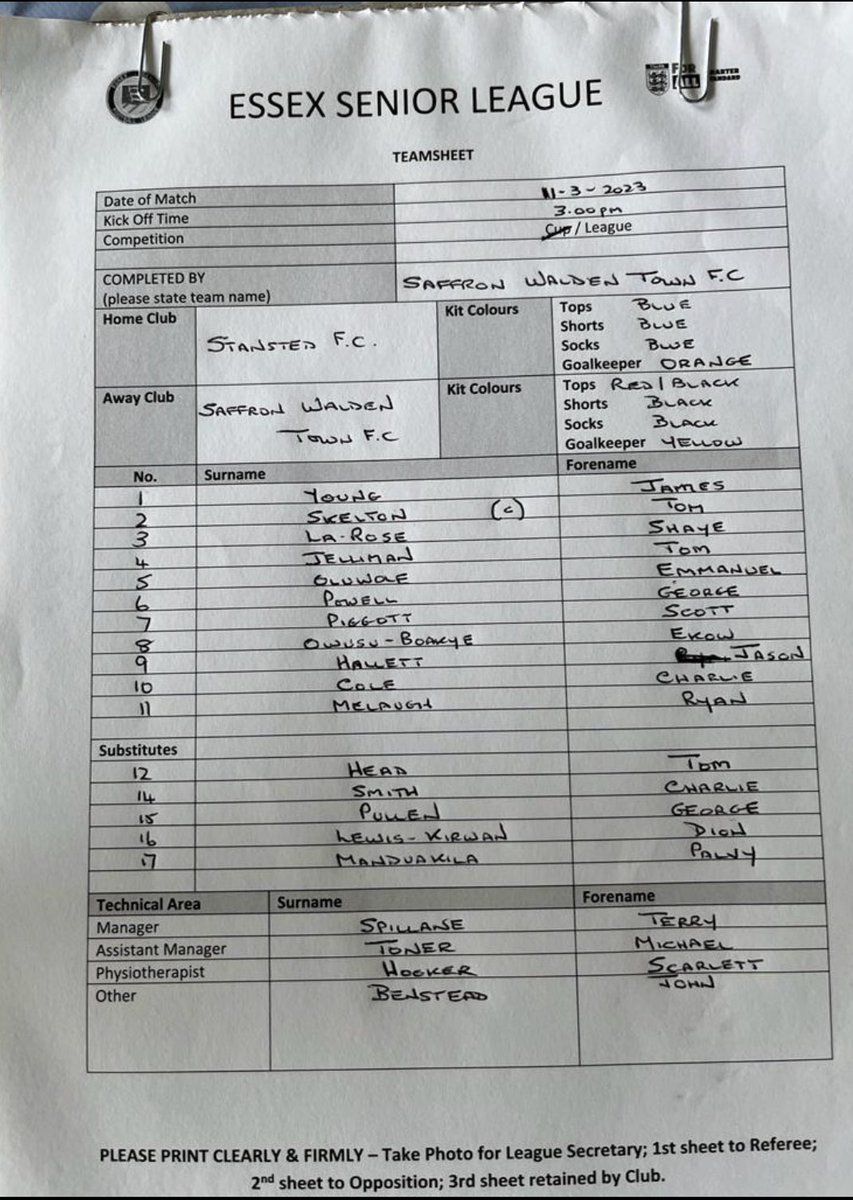 ESSEX SENIOR LEAGUE
TEAMSHEET
Date of Match 11-3-2023
Kick Off Time 3.00pm
Competition Cup / League
COMPLETED BY
(please state team name) SAFFRON WALDEN TOWN F.C
Home Club STANSTED F.C. Kit Colours Tops BLUE
Shorts BLUE
Socks BLUE
Goalkeeper ORANGE
Away Club SAFFRON WALDEN TOWN F.C Kit Colours Tops RED/BLACK
Shorts BLACK
Socks BLACK
Goalkeeper YELLOW
No. Surname Forename
1 YOUNG JAMES
2 SKELTON (C) TOM
3 LA-ROSE SHAYE
4 JELLIMAN TOM
5 OLUWOLE EMMANUEL
6 POWELL GEORGE
7 PIGGOTT SCOTT
8 OWUSU-BOAKYE EKOW
9 HALLETT JASON
10 COLE CHARLIE
11 MELAUGH RYAN
Substitutes
12 HEAD TOM
14 SMITH CHARLIE
15 PULLEN GEORGE
16 LEWIS-KIRWAN DION
17 MANDUAKILA PALVY
Technical Area Surname Forename
Manager SPILLANE TERRY
Assistant Manager TONER MICHAEL
Physiotherapist HOCKER SCARLETT
Other BENSTEAD JOHN
PLEASE PRINT CLEARLY & FIRMLY – Take Photo for League Secretary; 1st sheet to Referee;
2nd sheet to Opposition; 3rd sheet retained by Club.